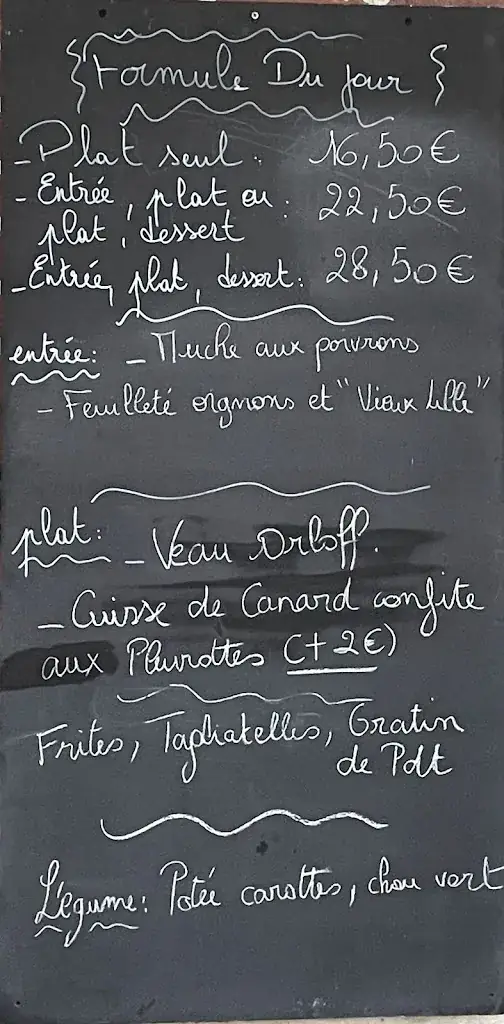 Formule Du jour
- Plat seul : 16,50€
- Entrée, plat ou : 22,50€
plat, dessert
- Entrée, plat, dessert : 28,50€
entrée: - Muche aux poivrons
- Feuilleté oignons et "Vieux Lille"
plat: - Veau Orloff.
- Cuisse de Canard confite
aux Pleurottes (+ 2€)
Frites, Tagliatelles, Gratin
de Pdt
Légume: Potée carottes, chou vert